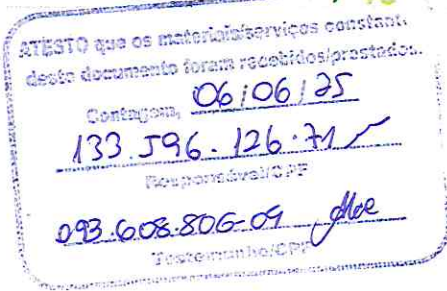 ATESTO que os materiais/serviços constant.
deste documento foram recebidos/prestados.
Contagem, 06/06/25
133.596.126-71
Responsável/CPF
093.608.806-09
Testemunha/CPF